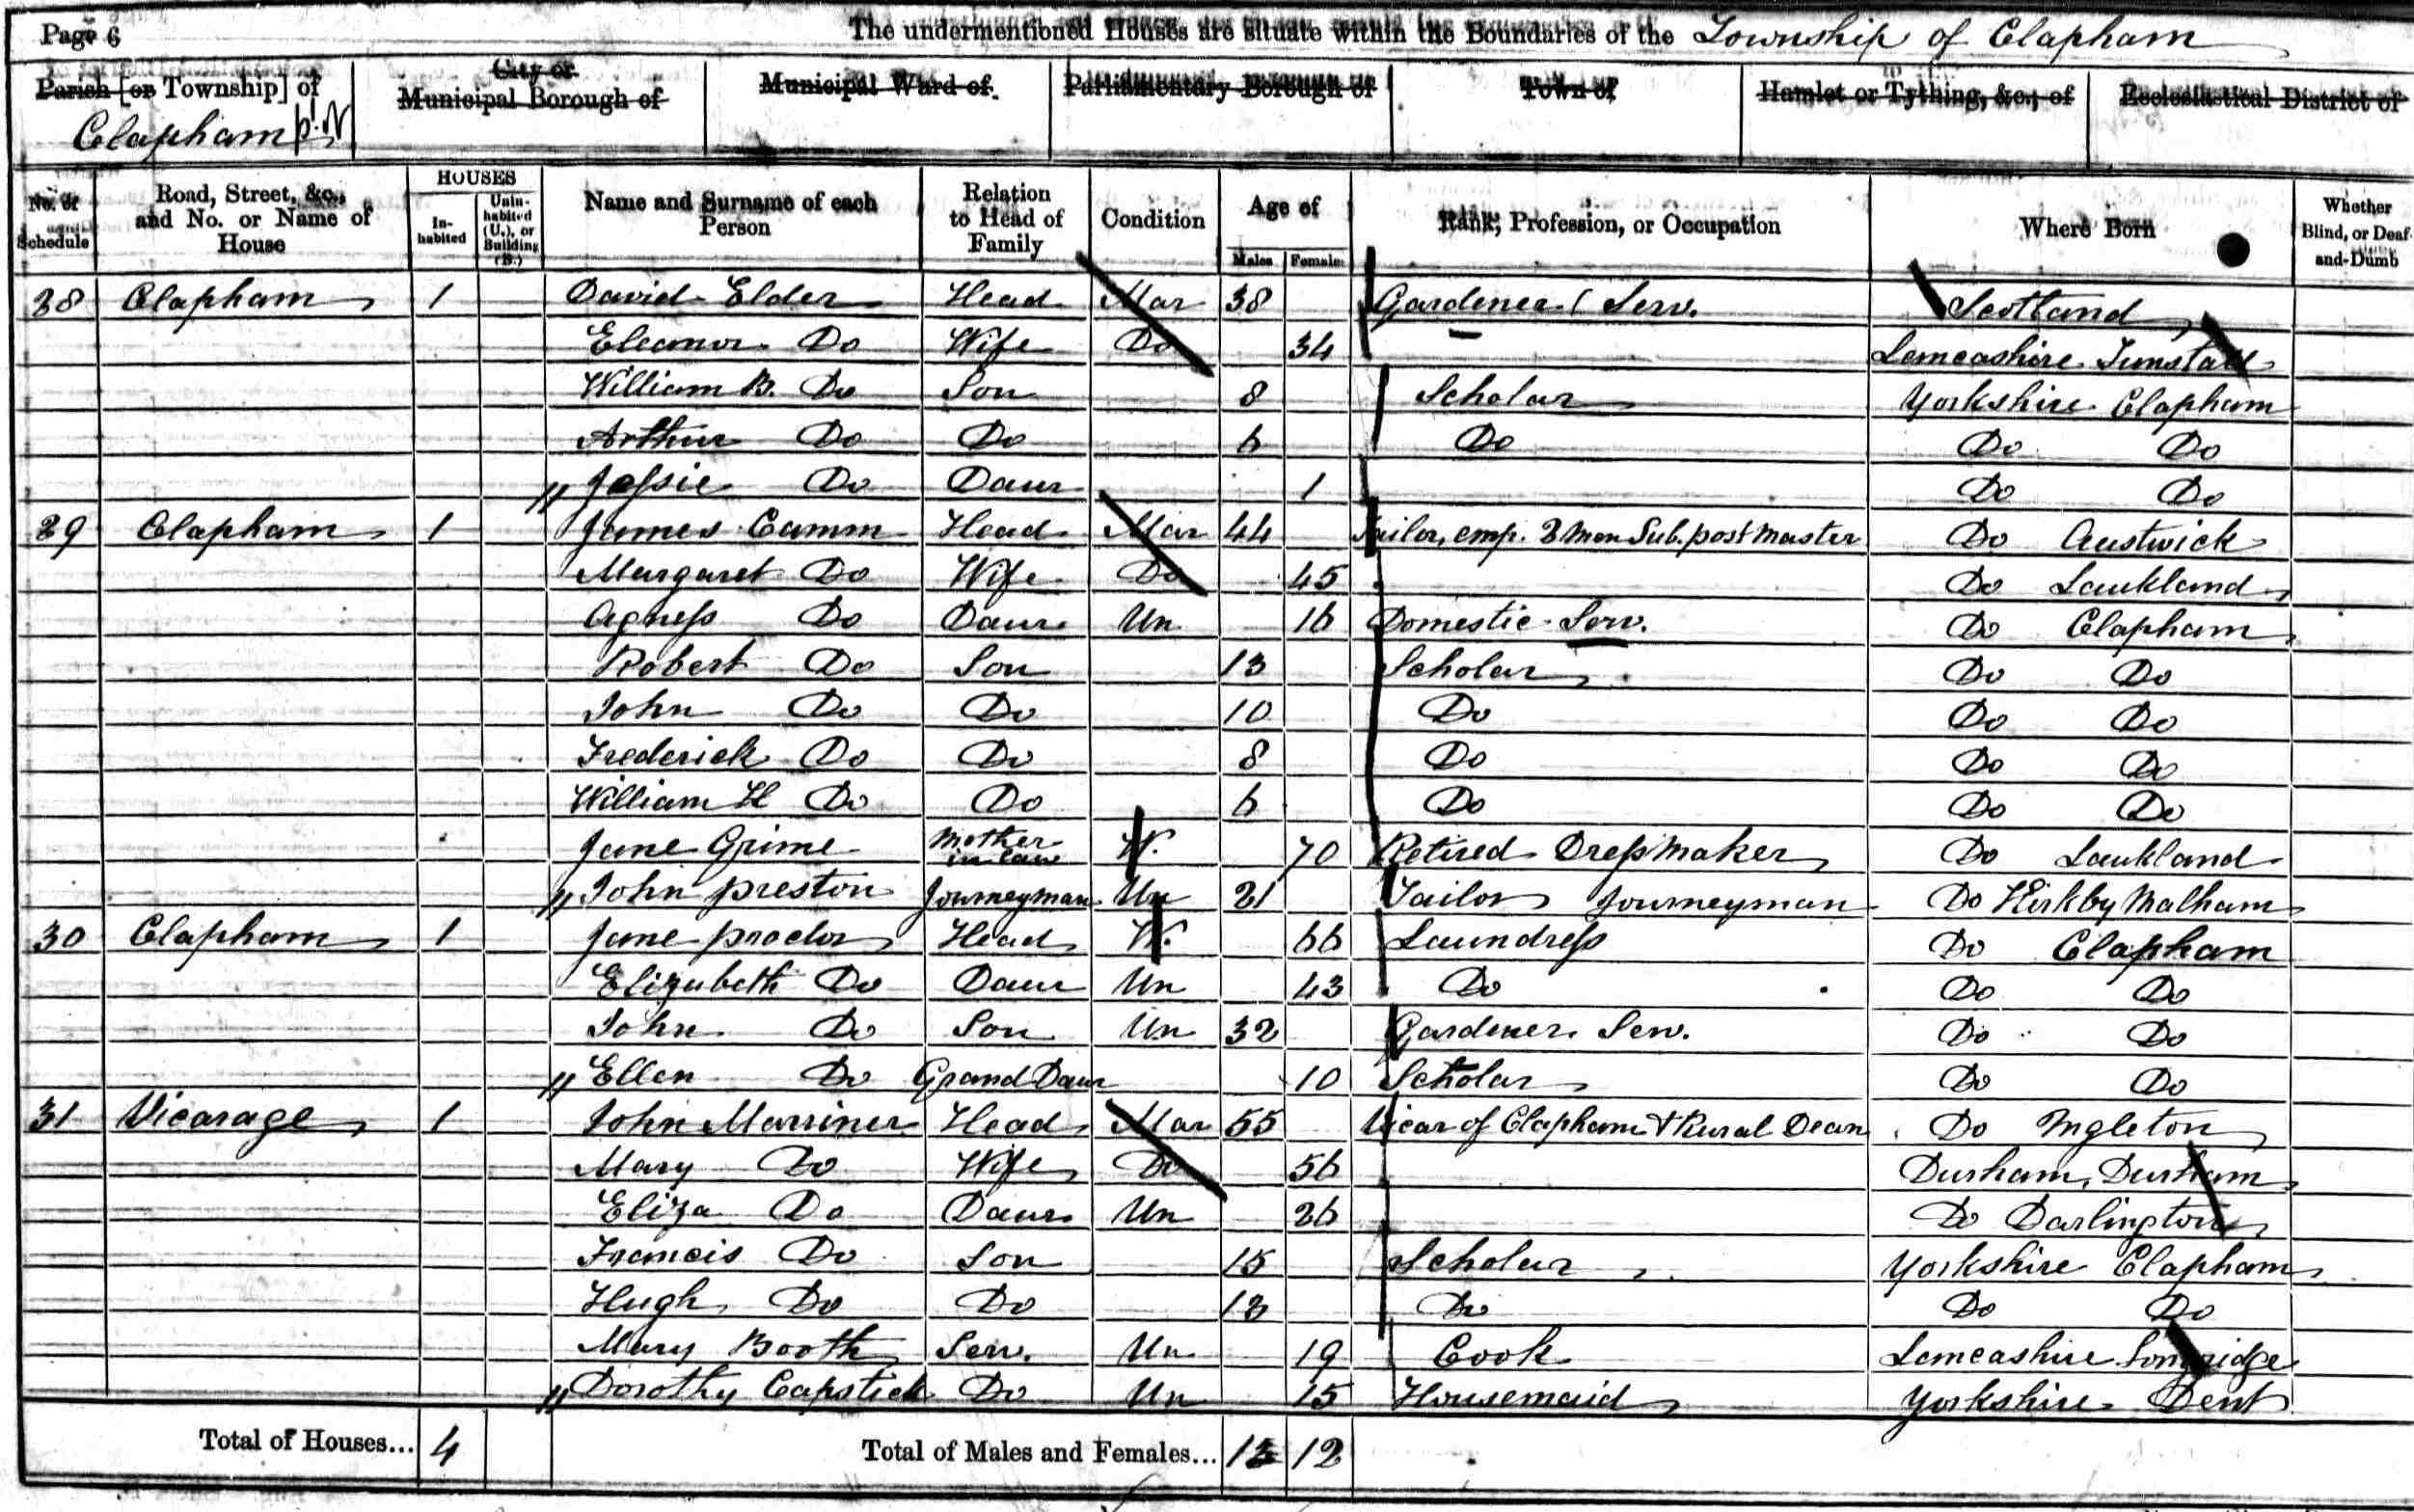 Page 6 The undermentioned Houses are situate within the Boundaries of the Township of Clapham
Parish [or Township] of City or Municipal Borough of Municipal Ward of Parliamentary Borough of Town of Hamlet or Tything, &c., of Ecclesiastical District of
Clapham
No. of Schedule Road, Street, &c., and No. or Name of House HOUSES Inhabited Uninhabited (U.), or Building (B.) Name and Surname of each Person Relation to Head of Family Condition Age of Males Females Rank, Profession, or Occupation Where Born Whether Blind, or Deaf-and-Dumb
28 Clapham 1 David Elder Head Mar 38 Gardener (Serv. Scotland
Eleanor Do Wife Do 34 Lancashire Tunstall
William B. Do Son 8 Scholar Yorkshire Clapham
Arthur Do Do 6 Do Do Do
" Jessie Do Daur 1 Do Do
29 Clapham 1 James Camm Head Mar 44 Tailor, emp. 2 Men Sub. post Master Do Austwick
Margaret Do Wife Do 45 Do Lawkland
Agness Do Daur Un 16 Domestic Serv. Do Clapham
Robert Do Son 13 Scholar Do Do
John Do Do 10 Do Do Do
Frederick Do Do 8 Do Do Do
William H Do Do 6 Do Do Do
Jane Grime Mother in law W. 70 Retired Dressmaker Do Lawkland
" John Preston Journeyman Un 21 Tailor Journeyman Do Kirkby Malham
30 Clapham 1 Jane Proctor Head W. 66 Laundress Do Clapham
Elizabeth Do Daur Un 43 Do Do Do
John Do Son Un 32 Gardener Serv. Do Do
" Ellen Do Grand Daur 10 Scholar Do Do
31 Vicarage 1 John Marriner Head Mar 55 Vicar of Clapham & Rural Dean Do Ingleton
Mary Do Wife Do 56 Durham, Durham
Eliza Do Daur Un 26 Do Darlington
Francis Do Son 15 Scholar Yorkshire Clapham
Hugh Do Do 13 Do Do Do
Mary Booth Serv. Un 19 Cook Lancashire Longridge
" Dorothy Capstick Do Un 15 Housemaid Yorkshire Dent
Total of Houses... 4 Total of Males and Females... 13 12